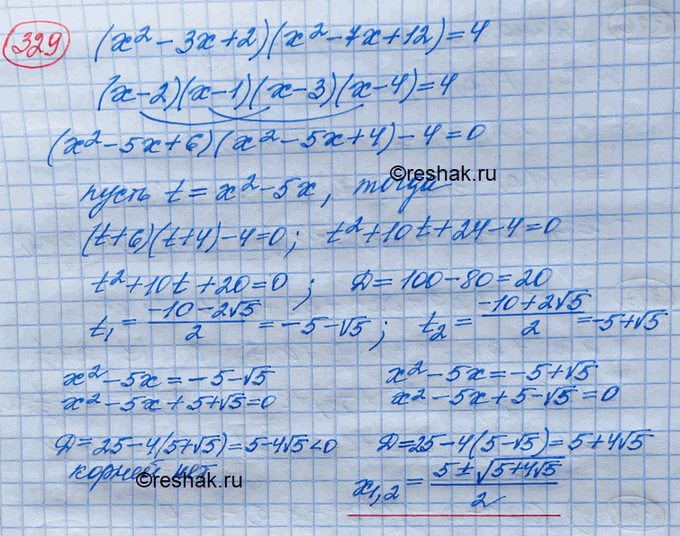 329 (x² - 3x + 2)(x² - 7x + 12) = 4
(x - 2)(x - 1)(x - 3)(x - 4) = 4
(x² - 5x + 6)(x² - 5x + 4) - 4 = 0
©reshak.ru
пусть t = x² - 5x, тогда
(t + 6)(t + 4) - 4 = 0; t² + 10t + 24 - 4 = 0
t² + 10t + 20 = 0; D = 100 - 80 = 20
t₁ = (-10 - 2√5)/2 = -5 - √5; t₂ = (-10 + 2√5)/2 = -5 + √5
x² - 5x = -5 - √5 x² - 5x = -5 + √5
x² - 5x + 5 + √5 = 0 x² - 5x + 5 - √5 = 0
D = 25 - 4(5 + √5) = 5 - 4√5 < 0 D = 25 - 4(5 - √5) = 5 + 4√5
корней нет x₁,₂ = (5 ± √(5 + 4√5))/2
©reshak.ru